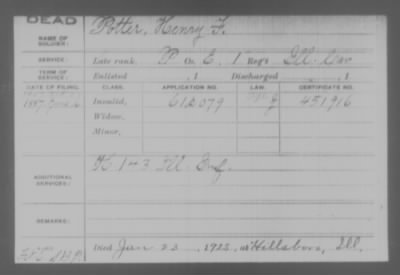 DEAD
NAME OF SOLDIER: Potter, Henry F.
SERVICE: Late rank, P Co. E, 1 Reg't Ill. Cav
TERM OF SERVICE: Enlisted , 1 Discharged , 1
DATE OF FILING. CLASS. APPLICATION NO. LAW. CERTIFICATE NO.
1887 June 6 Invalid, 612079 451916
Widow,
Minor,
ADDITIONAL SERVICES: K 143 Ill. Inf.
REMARKS:
Died Jan 23, 1923, at Hillsboro, Ill.